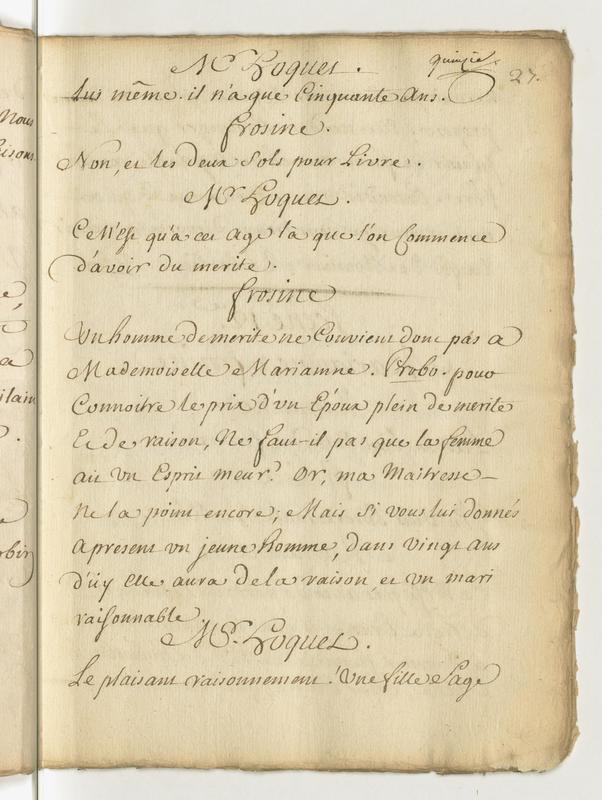 quinzie
27.
Mr. Hoquet.
lui même. il n'a que Cinquante Ans.
frosine.
Non, et les deux Sols pour Livre.
Mr. Hoquet.
Ce N'Est qu'à cet age là que l'on Commence
d'avoir du merite.
frosine
Un homme de merite ne Convient donc pas a
Mademoiselle Marianne. Probo. pour
Connoitre le prix d'un Epoux plein de merite
Et de raison, Ne faut-il pas que la femme
ait un Esprit meur? Or, ma Maitresse
Ne la point encore; Mais si vous lui donnés
apresent un jeune homme, dans vingt ans
d'icy Elle aura de la raison et un mari
raisonnable.
Mr. Hoquet.
Le plaisant raisonnement! Une fille Sage
Nous
isons
e,
a
ilain
e
rbin